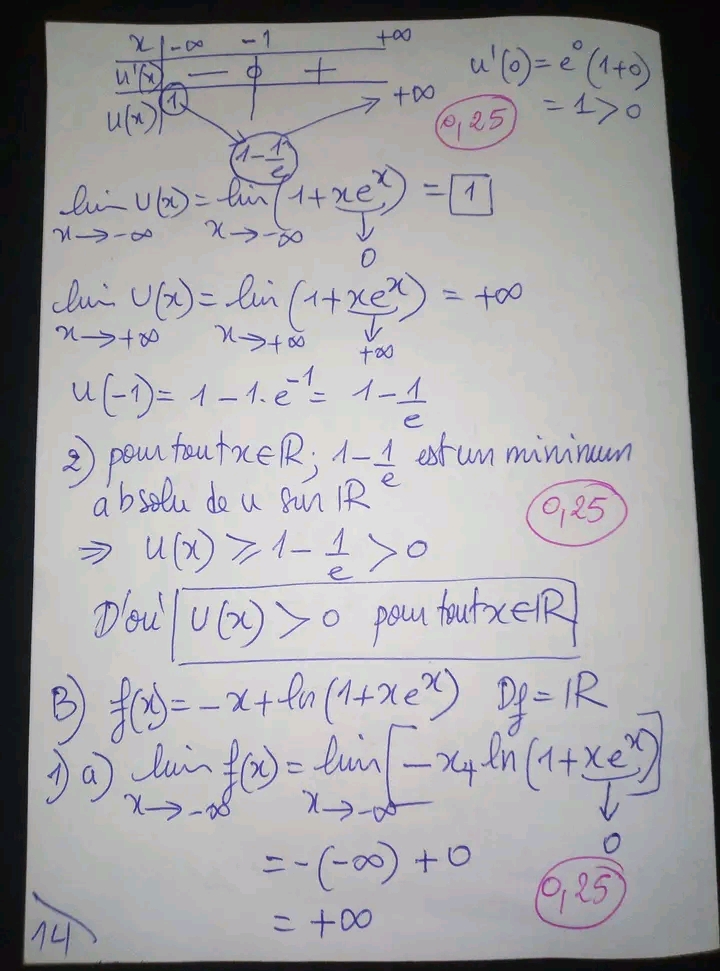 x | -∞ -1 +∞
u'(x) — 0 +
u(x) 1 1-1/e +∞
u'(0) = e⁰(1+0)
= 1 > 0
0,25
lim U(x) = lim (1+xeˣ) = 1
x→-∞ x→-∞ ↓
0
lim U(x) = lim (1+xeˣ) = +∞
x→+∞ x→+∞ ↓
+∞
U(-1) = 1-1.e⁻¹ = 1-1/e
2) pour tout x∈ℝ; 1-1/e est un minimum
absolu de u sur ℝ
0,25
⇒ U(x) ⩾ 1-1/e > 0
D'où U(x) > 0 pour tout x∈ℝ
B) f(x) = -x+ln(1+xeˣ) Df = ℝ
1) a) lim f(x) = lim [-x+ln(1+xeˣ)]
x→-∞ x→-∞ ↓
0
= -(-∞) + 0
0,25
= +∞
14